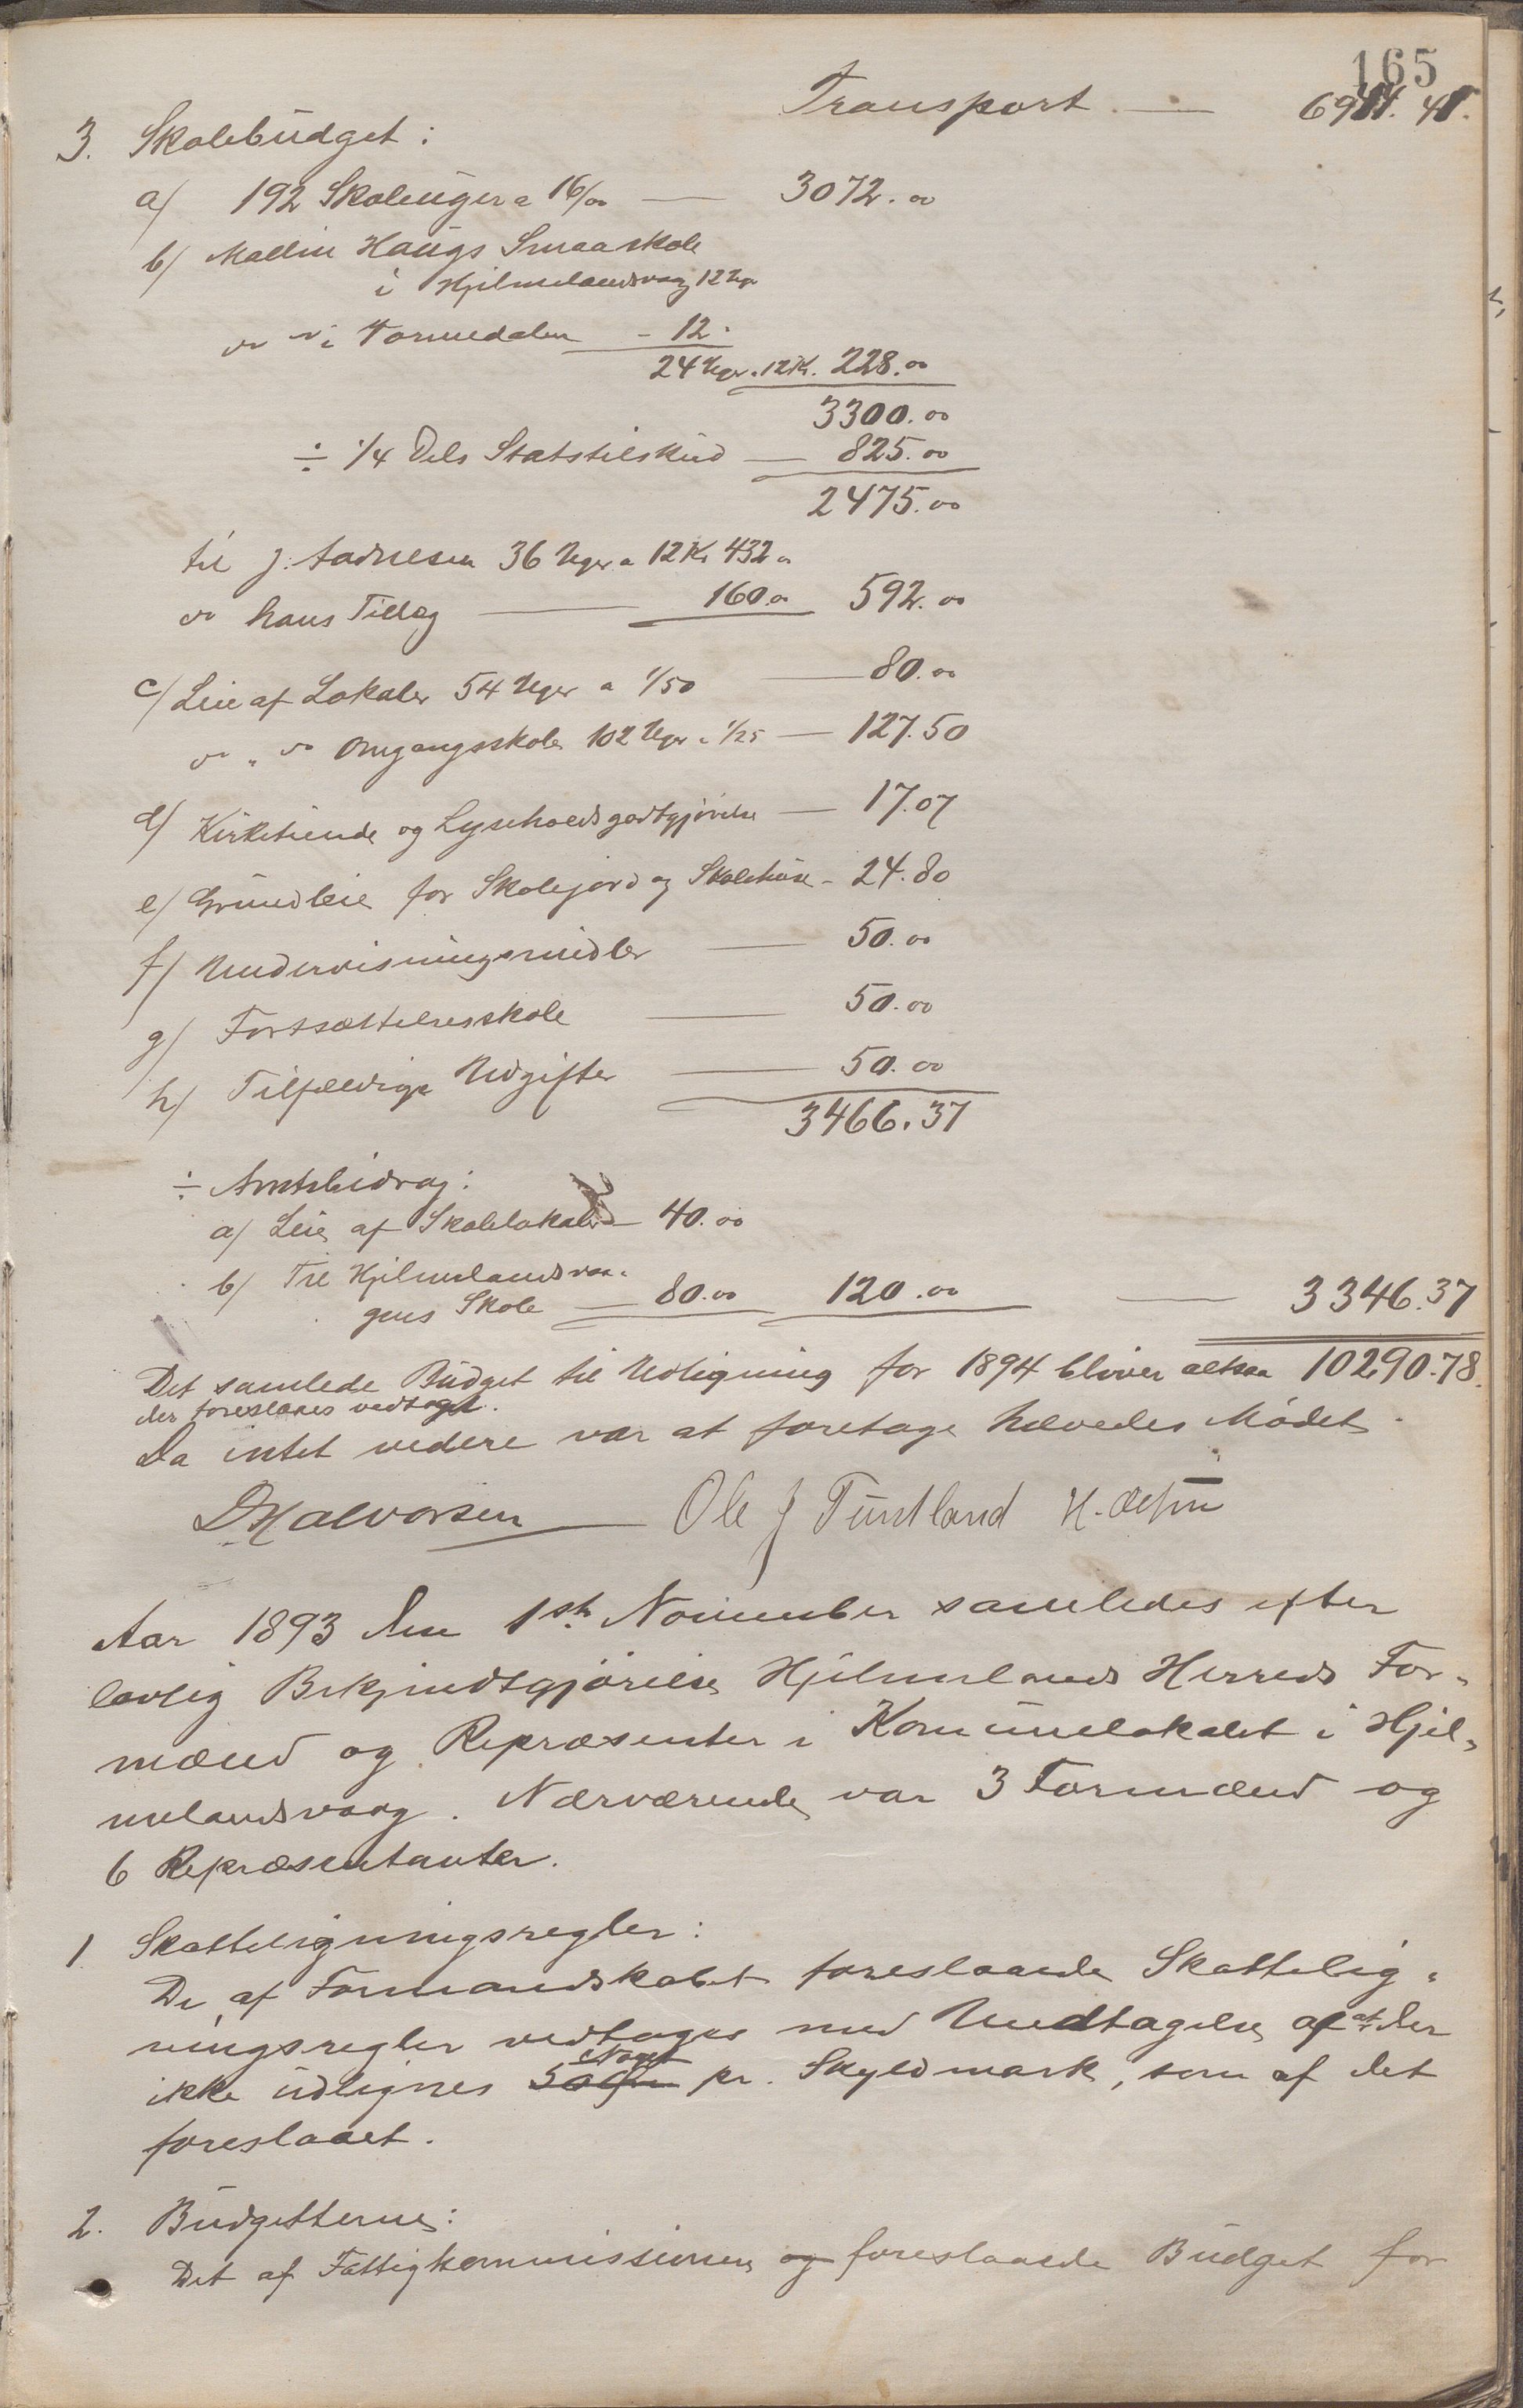 165
Transport — 6944.41.
3. Skolebudget:
a/ 192 Skoleuger a 16/00 — 3072.00
b/ Mallin Haugs Smaaskole
i Hjelmelandsvaag 12 Uger
do " i Tormedalen - 12.
24 Uger a 12 Kr. 228.00
3300.00
÷ 1/4 Dels Statstilskud — 825.00
2475.00
til J. Aadnesen 36 Uger a 12 Kr 432.00
do hans Tillæg — 160.00 592.00
c/ Leie af Lokaler 54 Uger a 1/50 — 80.00
do " do Omgangsskole 102 Uger a 1/25 — 127.50
d/ Kirketiende og Lyseholdsgodtgjørelse — 17.07
e/ Grundleie for Skolejord og Skolehuse - 24.80
f/ Undervisningsmidler — 50.00
g/ Fortsættelsesskole — 50.00
h/ Tilfældige Udgifter — 50.00
3466.37
÷ Amtsbidrag:
a/ Leie af Skolelokaler — 40.00
b/ Til Hjelmelandsvaa-
gens Skole — 80.00 120.00 — 3346.37
Det samlede Budget til Udligning for 1894 bliver altsaa 10290.78.
der foreslaaes vedtaget.
Da intet videre var at foretage hævedes Mødet.
D Halvorsen Ole J Tuntland H.
Aar 1893 den 1ste November samledes efter
lovlig Bekjendtgjørelse Hjelmelands Herreds For-
mænd og Repræsenter i Komunelokalet i Hjel-
melandsvaag. Nærværende var 3 Formænd og
6 Repræsentanter.
1 Skatteligningsregler:
De af Formandskabet foreslaaede Skattelig-
ningsregler vedtages med Undtagelse af at der
ikke udlignes 50 Øre Noget pr. Skyldmark, som af det
foreslaaet.
2. Budgetterne:
Det af Fattigkommissionen og foreslaaede Budget for